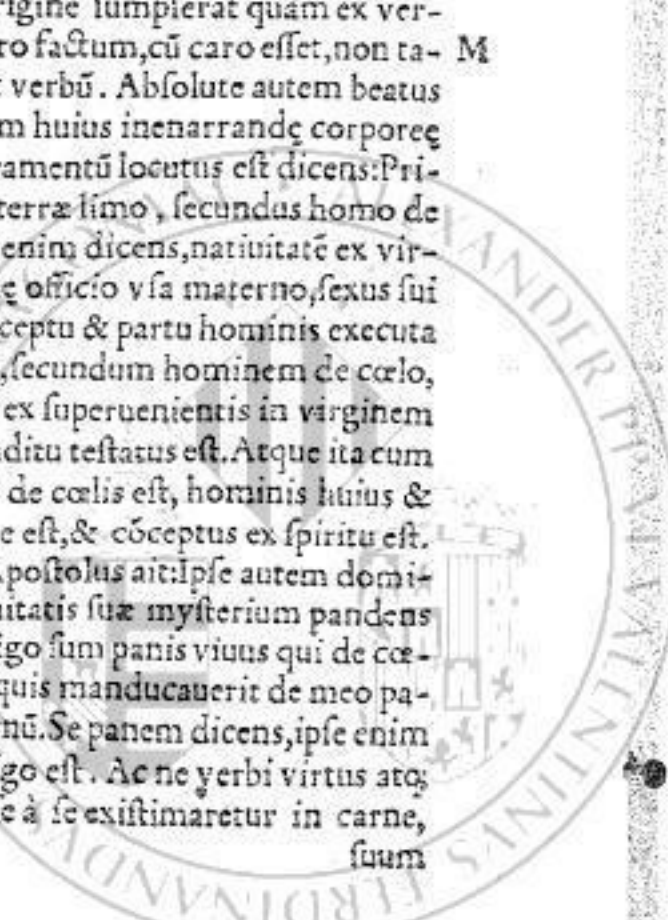 rigine sumpserat quàm ex ver-
ro factum,cū caro esset,non ta- M
t verbū. Absolute autem beatus
m huius inenarrandę corporeę
ramentū locutus est dicens:Pri-
terræ limo, secundus homo de
enim dicens,natiuitatē ex vir-
ę officio vsa materno,sexus sui
ceptu & partu hominis executa
,secundum hominem de cœlo,
ex superuenientis in virginem
ditu testatus est.Atque ita cum
de cœlis est, hominis huius &
e est,& cōceptus ex spiritu est.
postolus ait:Ipse autem domi-
uitatis suæ mysterium pandens
go sum panis viuus qui de cœ-
quis manducauerit de meo pa-
nū.Se panem dicens,ipse enim
go est. Ac ne verbi virtus atq;
e à se existimaretur in carne,
suum
ALEXANDER PP
VALENTINVS
FERDINANDVS